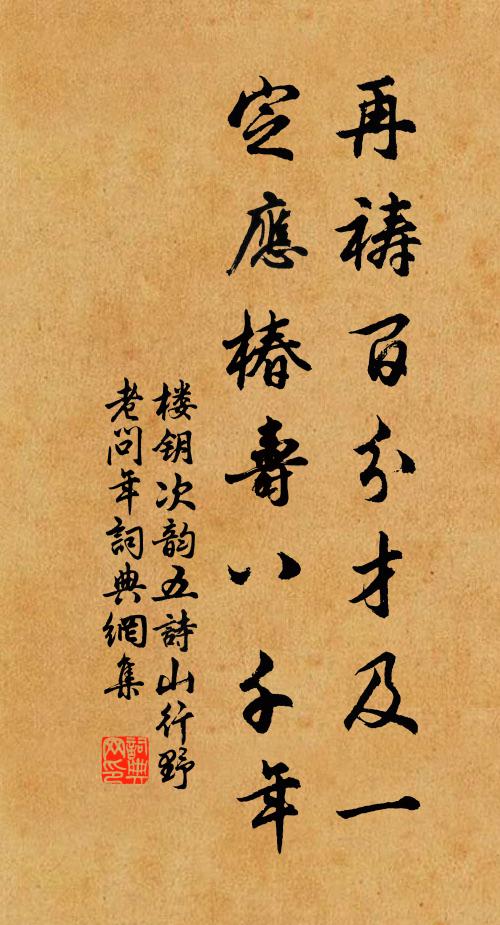 再禱百分才及一
定應椿壽八千年
楼钥次韵五詩山行野
老问年詞典網集
詞典网印